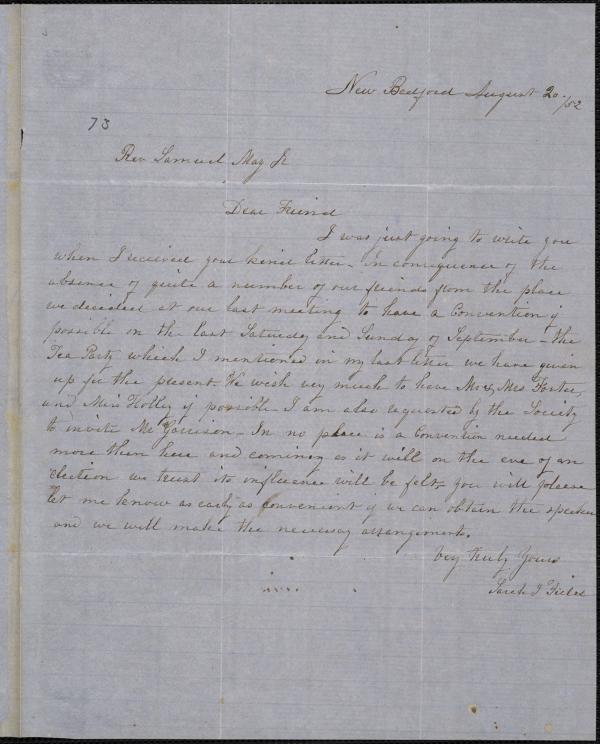 New Bedford August 20 /52
73
Rev Samuel May Jr
Dear Friend
I was just going to write you
when I received your kind letter - In consequence of the
absence of quite a number of our friends from the place
we decided at our last meeting to have a Convention if
possible on the last Saturday and Sunday of September - the
Tea Party which I mentioned in my last letter we have given
up for the present. We wish very much to have Mr & Mrs Foster,
and Miss Holley if possible. I am also requested by the Society
to invite Mr Garrison. In no place is a Convention needed
more then here and coming as it will on the eve of an
election we trust its influence will be felt. you will please
let me know as early as convenient if we can obtain the speakers
and we will make the necessary arrangements.
Very truly Yours
Sarah J Fields